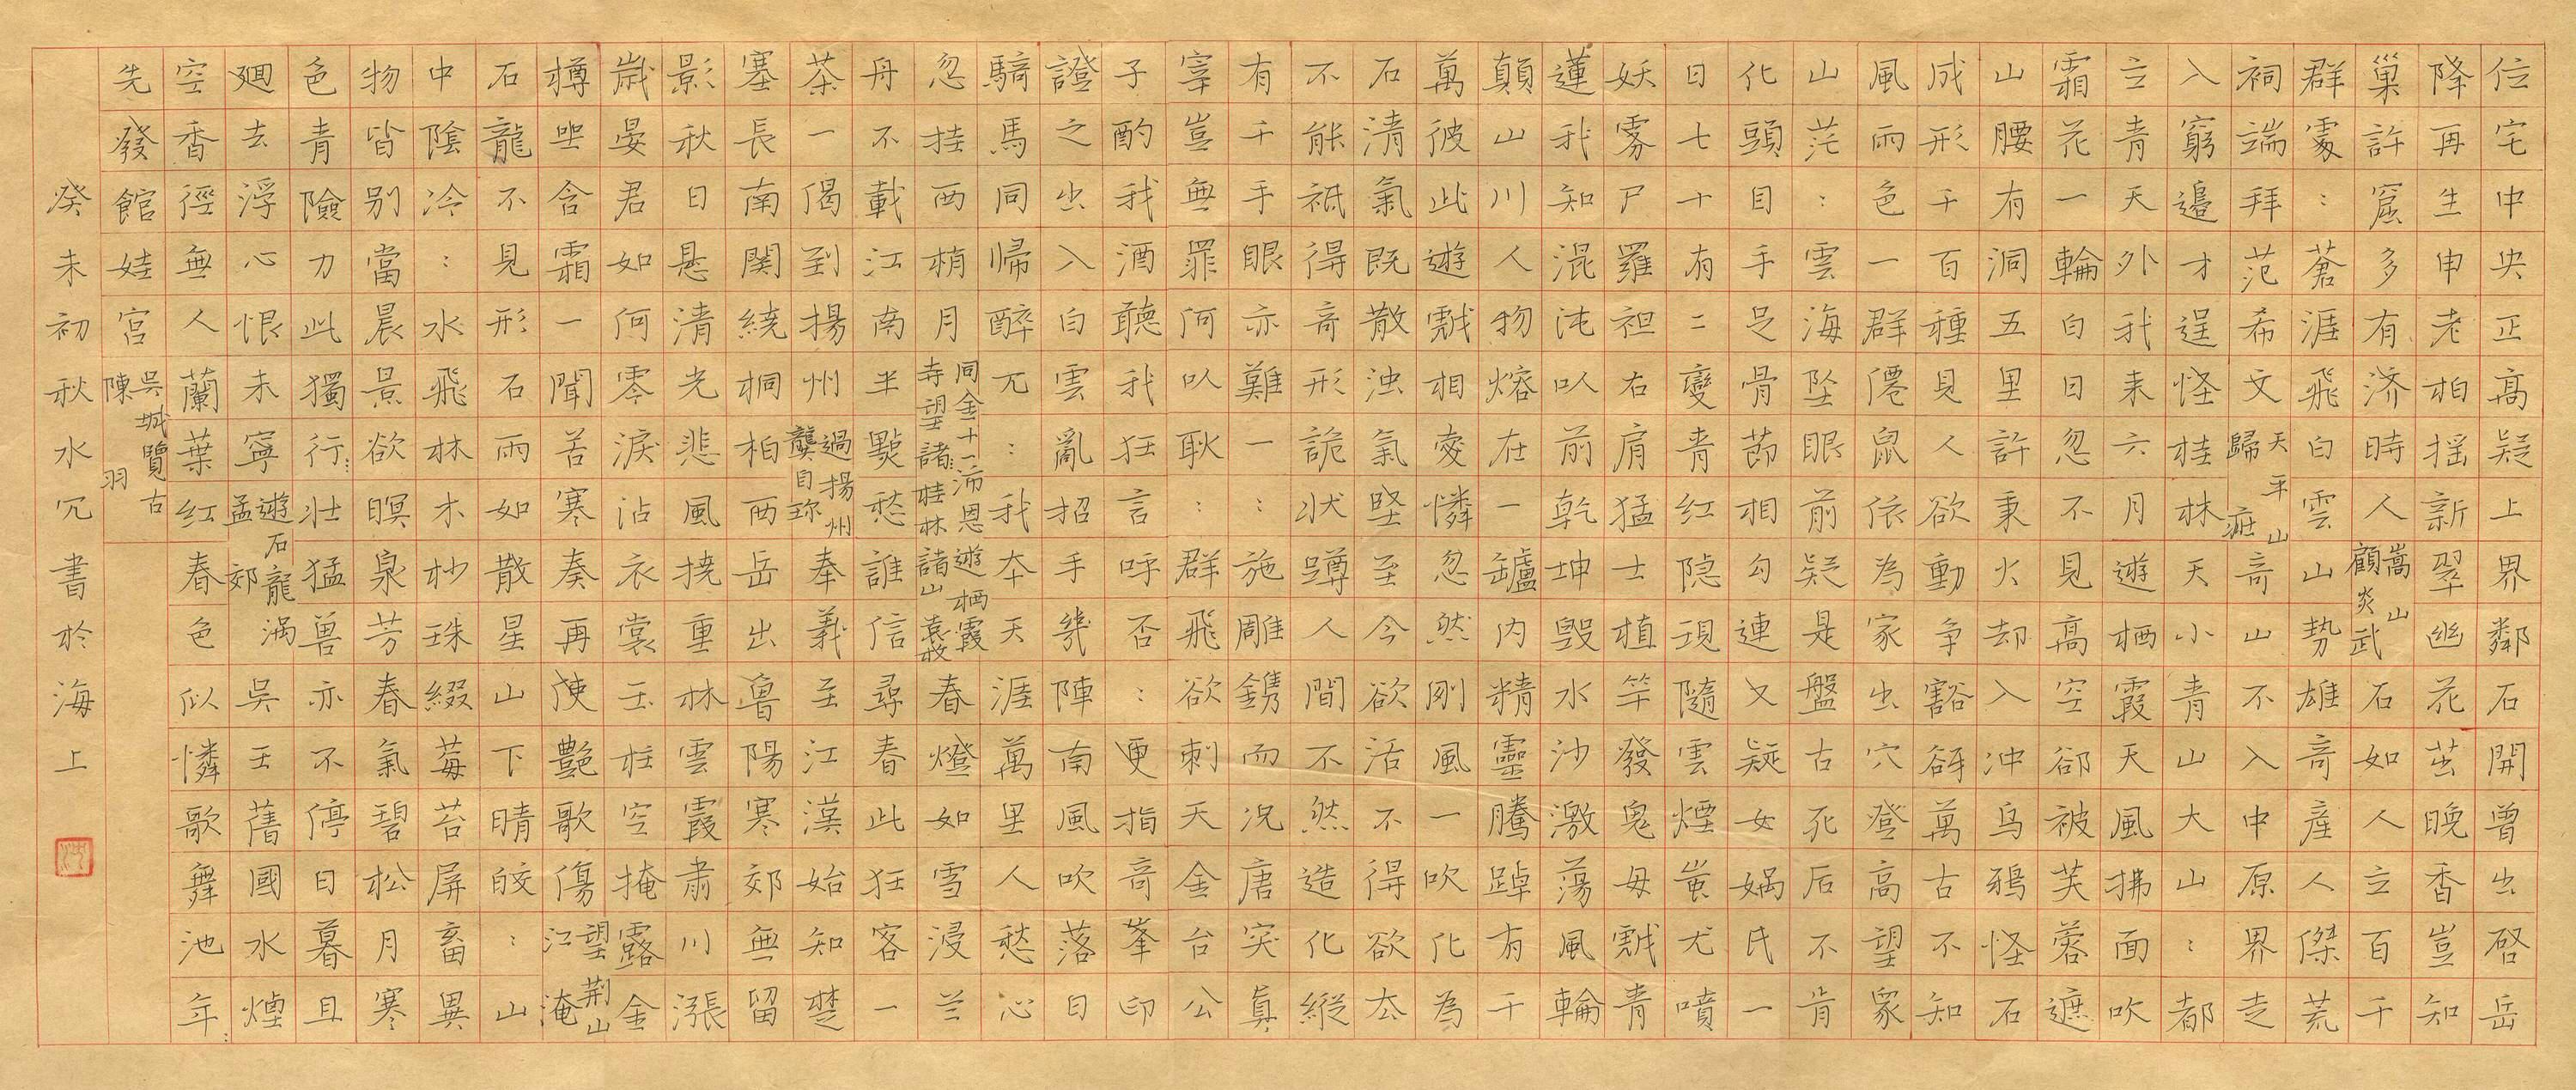 位宅中央正高疑上界鄰石開曾出啓岳
降再生申老柏搖新翠幽花茁晚香豈知
巢許窟多有济時人嵩山顧炎武石如人立百千
群:蒼涯飛白雲山勢雄奇產人傑荒
祠端拜范希文天平山歸莊奇山不入中原界走
入窮邉才逞怪桂林天小青山大山:都
立青天外我来六月遊栖霞天風拂面吹
霜花一輪白日忽不見高空卻被芙蓉遮
山腰有洞五里許秉火却入冲烏鴉怪石
成形千百種見人欲動争豁谺萬古不知
風雨色一群僊鼠依為家出穴登高望衆
山茫:雲海坠眼前疑是盤古死后不肯
化頭目手足骨節相勾連又疑女媧氏一
日七十有二變青紅隐現隨雲煙蚩尤噴
妖雾尸羅袒右肩猛士植竿發鬼母戲青
蓮我知混沌以前乾坤毁水沙激蕩風輪
顛山川人物熔在一罏内精靈騰踔有千
萬彼此遊戲相愛憐忽然剛風一吹化為
石清氣既散浊氣堅至今欲活不得欲去
不能祗得奇形詭狀蹲人間不然造化縱
有千手眼亦難一:施雕鎸而况唐突真
宰豈無罪何以耿:群飛欲刺天金台公
子酌我酒聽我狂言呼否:更指奇峯印
證之出入白雲亂招手幾陣南風吹落日
騎馬同歸醉兀:我本天涯萬里人愁心
忽挂西梢月同金十一沛恩遊栖霞寺望諸桂林諸山袁枚春燈如雪浸兰
舟不載江南半點愁誰信尋春此狂客一
茶一偈到揚州過揚州龔自珍奉義至江漢始知楚
塞長南関繞桐柏西岳出魯陽寒郊無留
影秋日悬清光悲風撓重林雲霞肃川漲
嵗晏君如何零淚沾衣裳玉柱空掩露金
樽坐含霜一聞苦寒奏再使艷歌傷望荊山江淹
石龍不見形石雨如散星山下晴皎:山
中陰冷:水飛林木杪珠綴莓苔屏畜異
物皆别當晨景欲暝泉芳春氣碧松月寒
色青險力此獨行:壯猛兽亦不停日暮且
廻去浮心恨未寧遊石龍涡孟郊吳王舊國水煙
空香徑無人蘭葉红春色似憐歌舞池年:
先發館娃宮吳城覽古陳羽
癸未初秋水冗書於海上